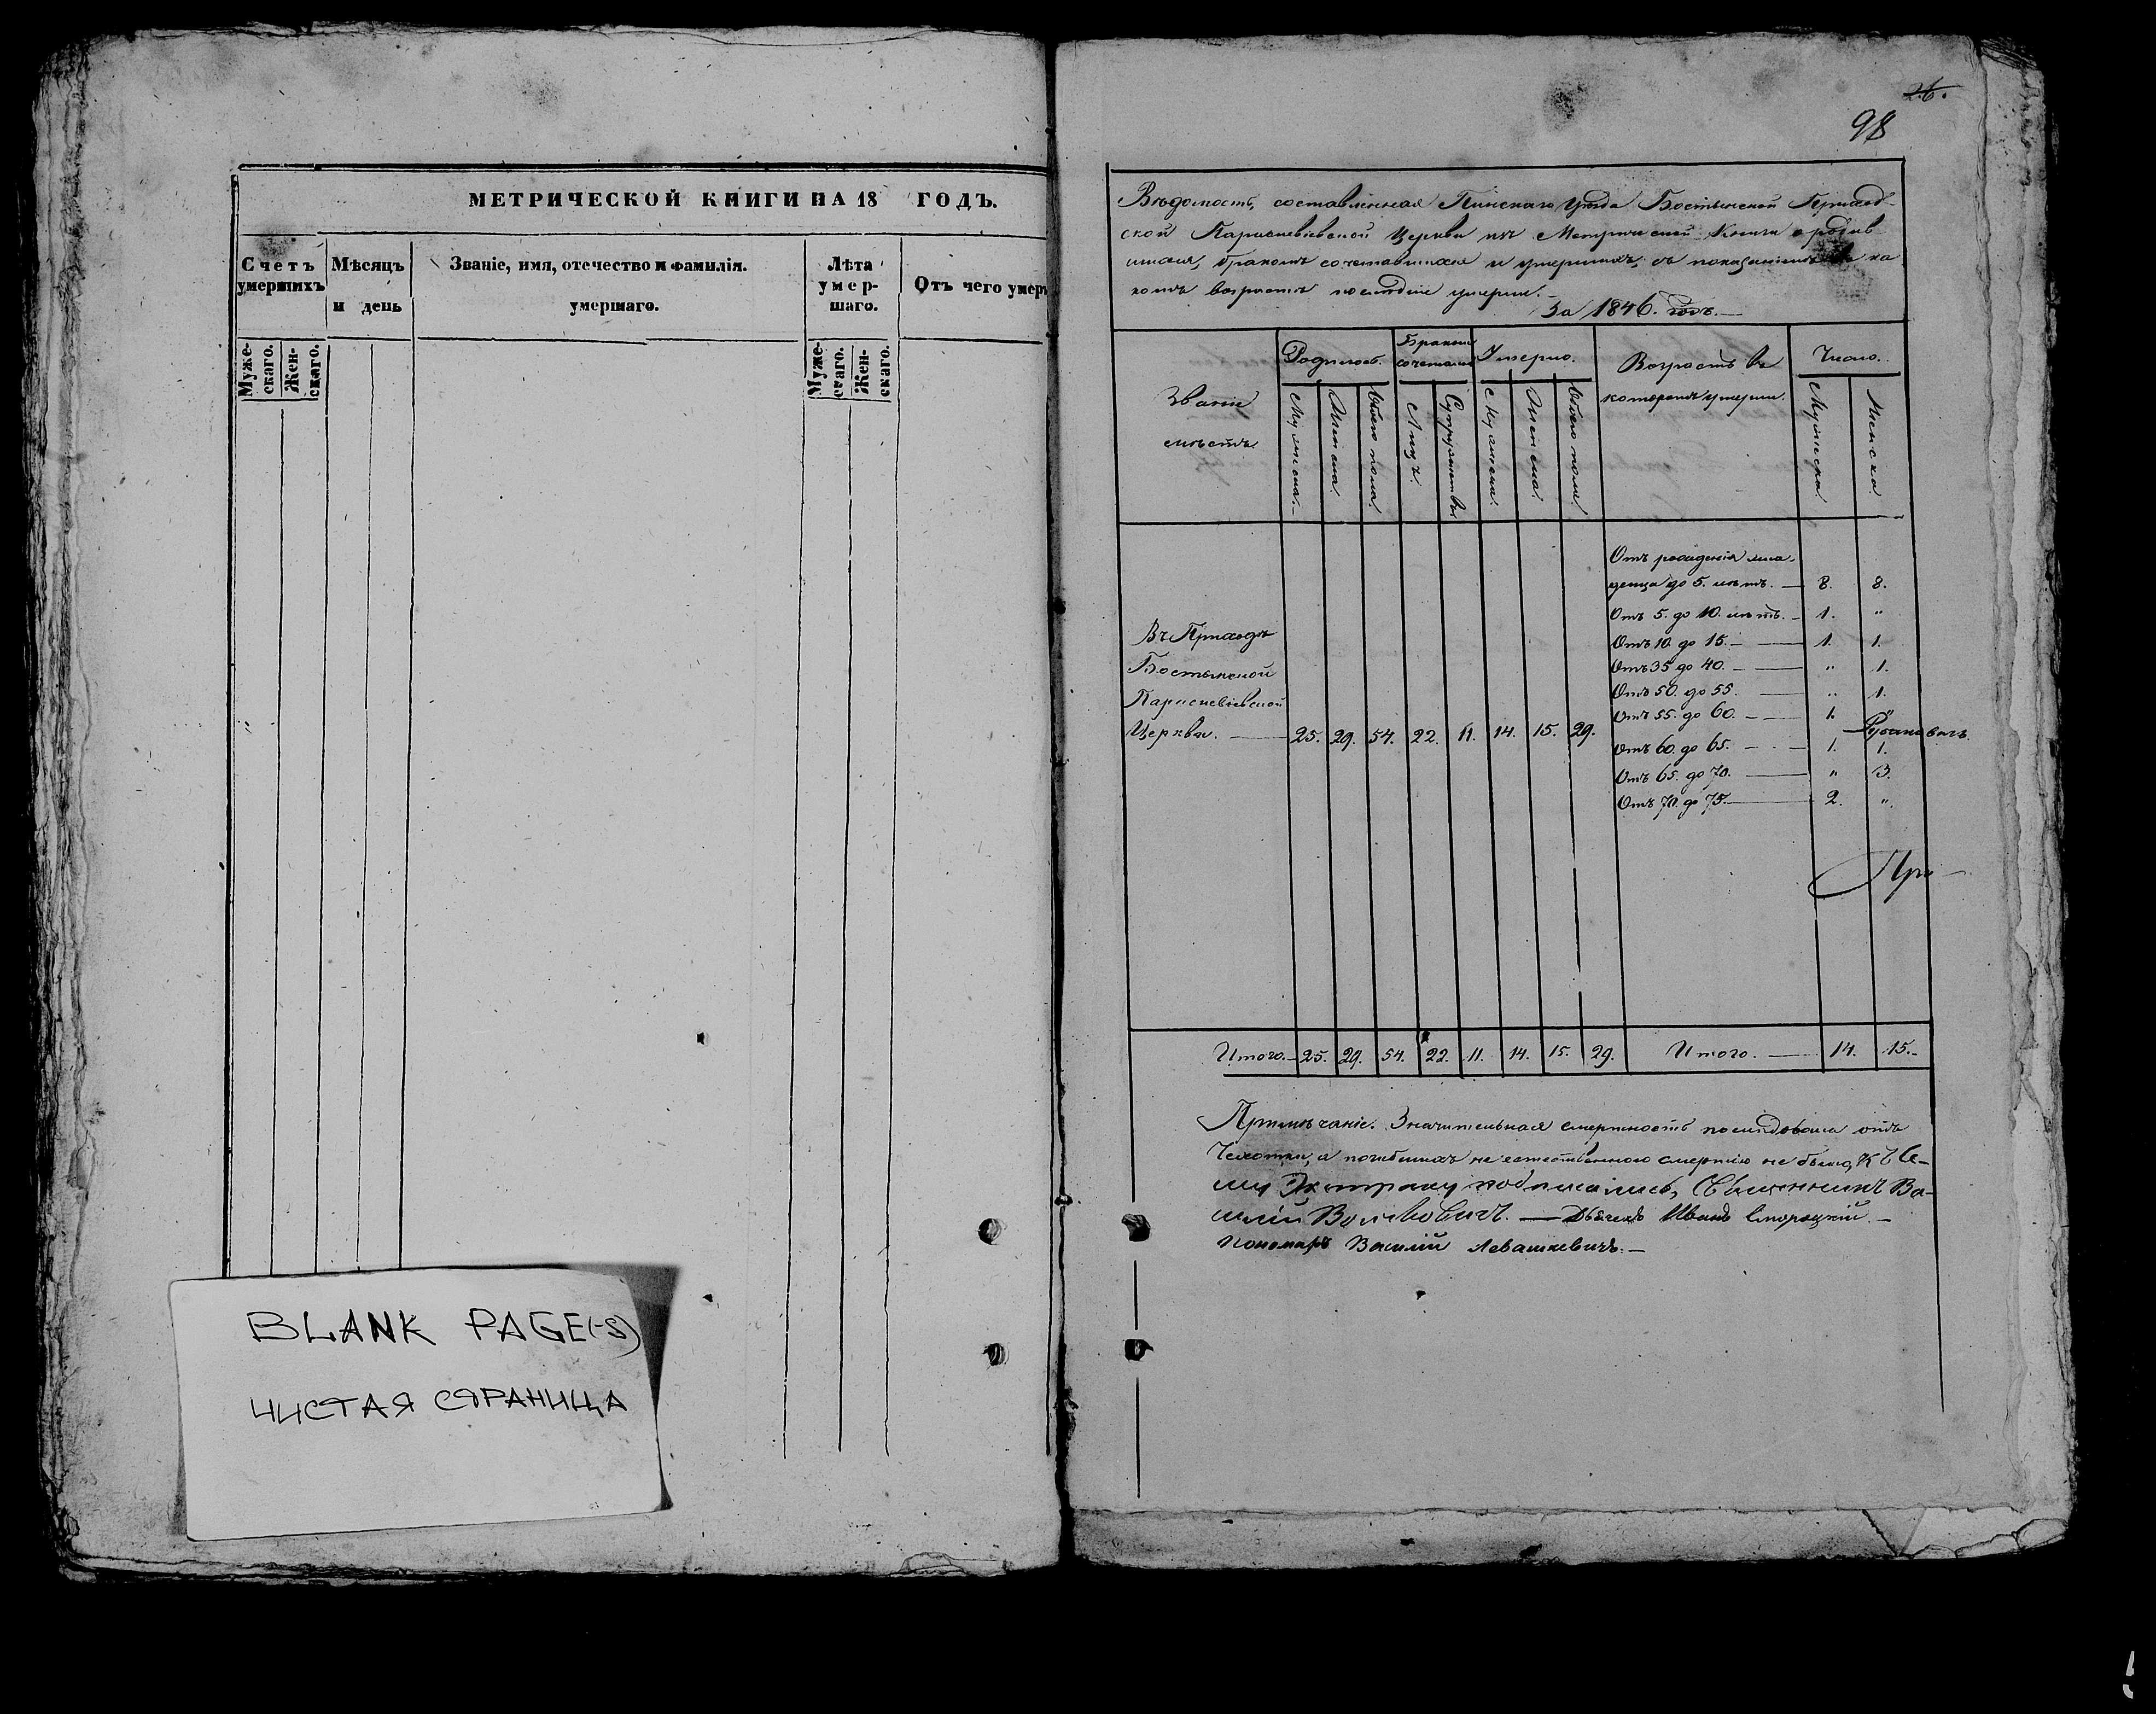 МЕТРИЧЕСКОЙ КНИГИ НА 18 ГОДЪ.
Счетъ умершихъ
Мѣсяцъ и день
Званіе, имя, отечество и фамилія.
умершаго.
Лѣта умер-
шаго.
Отъ чего умер
Муже-
скаго.
Жен-
скаго.
Муже-
скаго.
Жен-
скаго.
BLANK PAGE(-S)
ЧИСТАЯ СТРАНИЦА
26.
98
Вѣдомость, составленная Пинскаго уѣзда Бостынской Приход-
ской Параскевіевской Церкви изъ Метрической Книги о родив
шихся, бракомъ сочетавшихся и умершихъ, съ показаніемъ въ ка
комъ возрастѣ послѣдніе умерли.
За 1846. годъ.
Званіе
мѣстъ
Родилось.
Бракомъ
сочетались
Умерло.
Возрастъ въ
которомъ умерли.
Число.
Мужеска.
Женска.
Обоего пола.
Лицъ.
Супружествъ
Мужеска.
Женска.
Обоего пола
Мужеска.
Женска.
Отъ рожденія мла-
денца до 5. лѣтъ. — 8. 8.
Отъ 5. до 10. лѣтъ. — 1. "
Отъ 10. до 15. — 1. 1.
Отъ 35 до 40. — " 1.
Отъ 50. до 55. — " 1.
Отъ 55. до 60. — 1. "
Отъ 60. до 65. — 1. 1.
Отъ 65. до 70. — " 3.
Отъ 70. до 75. — 2. ".
Въ Приходѣ
Бостынской
Параскевіевской
Церкви. — 25. 29. 54. 22. 11. 14. 15. 29.
При
Итого. — 25. 29. 54. 22. 11. 14. 15. 29. Итого. — 14. 15. -
Примѣчаніе. Значительная смертность послѣдовала отъ
Чахотки, а погибшихъ не естественною смертію не было, Къ се-
му Экстракту подписались, Священникъ Ва-
силій Волковичъ. — Дьячекъ Иванъ —
Пономарь Василій Левашкевичъ. —